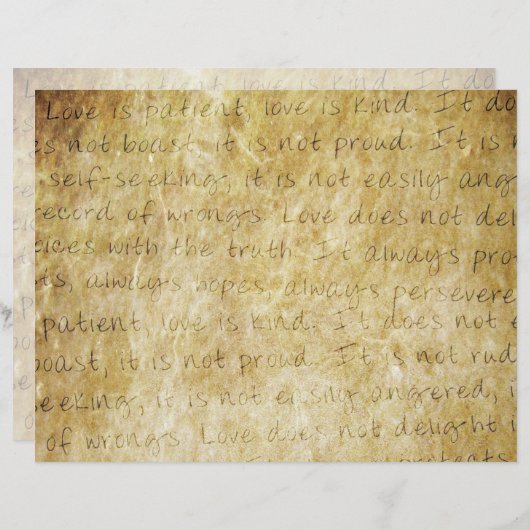 Love is patient, love is kind. It do
es not boast, it is not proud. It is
self-seeking, it is not easily ang
record of wrongs. Love does not del
oices with the truth. It always pro
sts, always hopes, always persevere
patient, love is kind. It does not e
boast, it is not proud. It is not rud
seeking, it is not easily angered, i
of wrongs. Love does not delight i